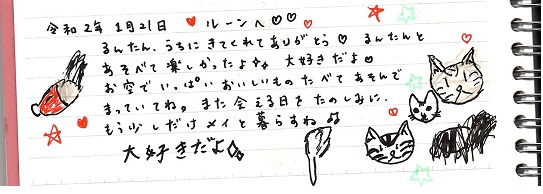 令和2年 1月21日 ♥ ルーンへ♡♡
るんたん、うちにきてくれてありがとう♡ るんたんと
あそべて楽しかったよ♪♪ 大好きだよ♡
お空でいっぱいおいしいものたべてあそんで
まっていてね。また会える日をたのしみに、
もう少しだけメイと暮らすね♪
大好きだよ♪♪